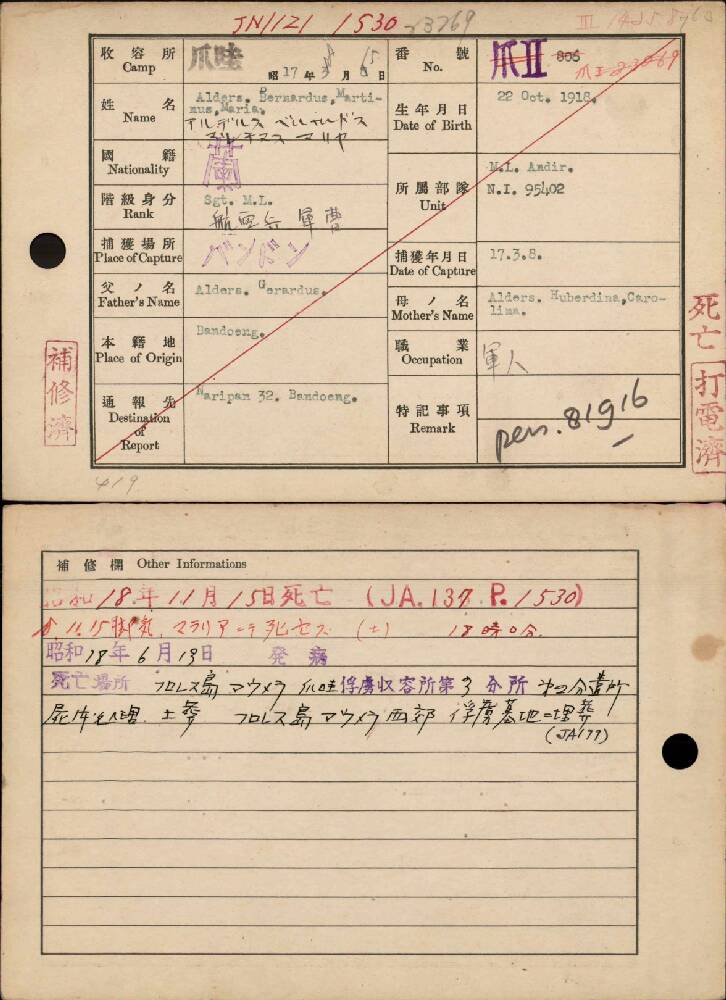 JN1121 1530 23769
收容所 Camp 爪哇 昭17年 月 日 15
番號 No. 爪II 805
姓名 Name Alders. Bernardus, Marti-
nus, Maria.
アルデルス ベルナルドス
マルチヌス マリヤ
生年月日 Date of Birth 22 Oct. 1918.
國籍 Nationality 蘭
階級身分 Rank Sgt. M.L.
航空兵 軍曹
所屬部隊 Unit M.L. Andir.
N.I. 95402
捕獲場所 Place of Capture バンドン
捕獲年月日 Date of Capture 17.3.8.
父ノ名 Father's Name Alders. Gerardus.
母ノ名 Mother's Name Alders. Huberdina, Caro-
lina.
本籍地 Place of Origin Bandoeng.
職業 Occupation 軍人
通報先 Destination of Report Naripan 32. Bandoeng.
特記事項 Remark pen. 81916
補修濟
死亡 打電濟
419
補修欄 Other Informations
昭和18年11月15日死亡 (JA.137. P.1530)
18.11.15 脚気 マラリアニテ死セス (土) 18時0分
昭和18年6月13日 発病
死亡場所 フロレス島マウメラ 爪哇俘虜収容所第3分所 分遣所
屍体処理 土葬 フロレス島マウメラ西部 俘虜墓地ニ埋葬
(JA177)